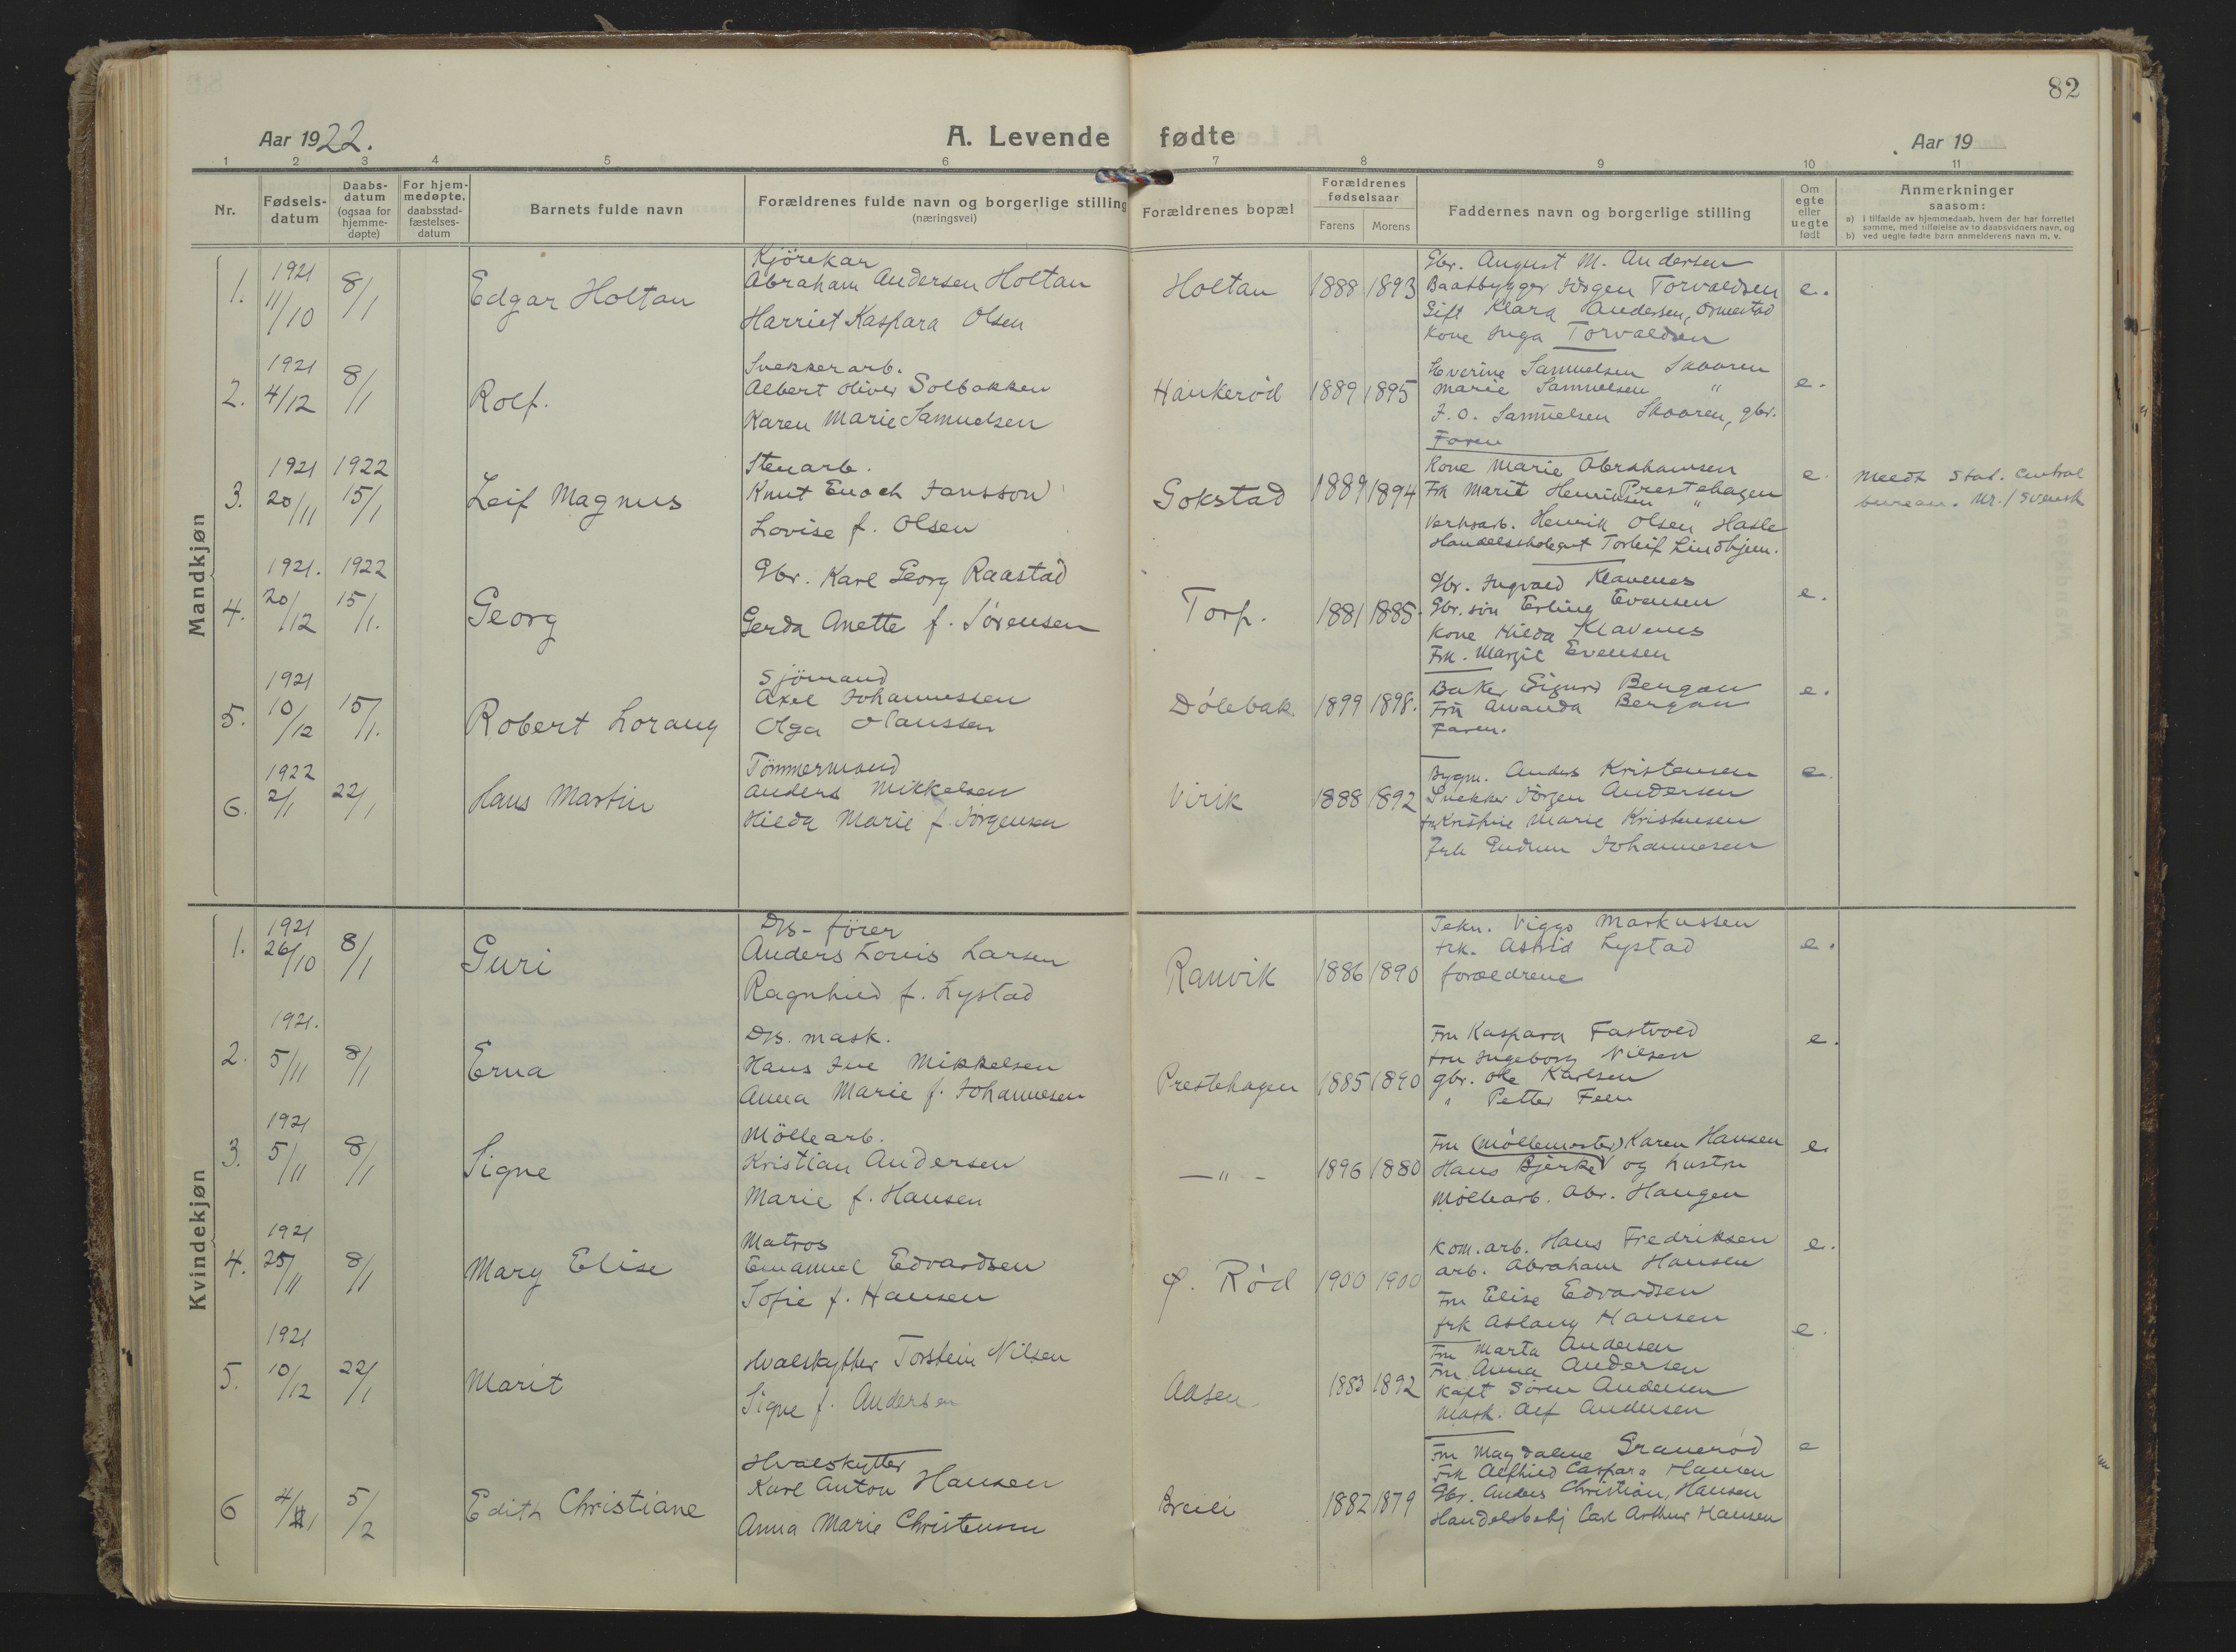 82
Aar 1922.
A. Levende fødte
Aar 19
1 2 3 4 5 6 7 8 9 10 11
Nr.
Fødselsdatum
Daabsdatum (ogsaa for hjemmedøpte)
For hjemmedøpte, daabsstadfæstelsesdatum
Barnets fulde navn
Forældrenes fulde navn og borgerlige stilling
(næringsvei)
Forældrenes bopæl
Forældrenes fødselsaar
Farens Morens
Faddernes navn og borgerlige stilling
Om egte eller uegte født
Anmerkninger
saasom:
a) i tilfælde av hjemmedaab, hvem der har forrettet
samme, med tilføielse av to daabsvidners navn, og
b) ved uegte fødte barn anmelderens navn m. v.
Mandkjøn
1. 1921 11/10 8/1 Edgar Holtan
Kjörekar
Abraham Andersen Holtan
Harriet Kaspara Olsen
Holtan 1888 1893
Gbr. August M. Andersen
Baatbygger Jörgen Torvaldsen e.
Gift Klara Andersen,
Kone Inga Torvaldsen
2. 1921 4/12 8/1 Rolf.
Snekkerarb.
Albert Oliver Solbakken
Karen Marie Samuelsen
Haukerød 1889 1895
Severine Samuelsen Skaaren
Marie Samuelsen " e.
J. O. Samuelsen Skaaren, gbr.
Faren
3. 1921 20/11 1922 15/1 Leif Magnus
Stenarb.
Knut Enoch Jansson
Lovise f. Olsen
Gokstad 1889 1894
Kone Marie Abrahamsen e.
Frk Marit Henriksen Prestehagen "
Verksarb. Henrik Olsen Hasle
Torleif Lindhjem.
Meedt Stat. Central
bureau. Nr. 1 Svensk
4. 1921. 20/12 1922 15/1. Georg
Gbr. Karl Georg Raastad
Gerda Anette f. Sörensen
Torp. 1881 1885.
Gbr. Ingvald Klavenes
Gbr. sön Erling Evensen e.
Kone Hilda Klavenes
Frk. Margit Evensen
5. 1921 10/12 15/1. Robert Lorang
Sjömand
Axel Johannessen
Olga Clanssen
Dölebak 1899 1898.
Baker Sigurd Bergan e.
Fru Amanda Bergan
Faren.
6. 1922 2/1 22/1 Hans Martin
Tömmermand
Anders Mikkelsen
Hilda Marie f. Jörgensen
Virik 1888 1892
Bygm. Anders Kristensen e.
Snekker Jörgen Andersen
Fru Kristine Marie Kristensen
Frk Gudrun Johannesen
Kvindekjøn
1. 1921 26/10 8/1 Guri
D/s- förer
Anders Louis Larsen
Ragnhild f. Lystad
Ranvik 1886 1890
Tekn. Viggo Markussen
Frk. Astrid Lystad e.
forældrene
2. 1921. 5/11 8/1 Erna
D/s. mask.
Hans Ine Mikkelsen
Anna Marie f. Johannesen
Prestehagen 1885 1890
Fru Kaspara Fastvold e.
Fru Ingeborg Nilsen
gbr. Ole Karlsen
" Petter Feen
3. 1921 5/11 8/1 Signe
Möllearb.
Kristian Andersen
Marie f. Hansen
— " - 1896 1880
Fru (Möllemester) Karen Hansen e.
Hans Bjerke og hustru
Möllearb. Abr. Haugen
4. 1921 25/11 8/1 Mary Elise
Matros
Emanuel Edvardsen
Sofie f. Hansen
Ø. Rød 1900 1900
Kom. arb. Hans Fredriksen e.
arb. Abraham Hansen
Fru Elise Edvardsen
frk Aslaug Hansen
5. 1921 10/12 22/1 Marit
Hvalskytter Torstein Nilsen
Signe f. Andersen
Aasen 1883 1892
Fru Marta Andersen e.
Fru Anna Andersen
Kapt Sören Andersen
Mask. Alf Andersen
6 4/1 5/2 Edith Christiane
Hvalskytter
Karl Anton Hansen
Anna Marie Christensen
Breili 1882 1879
Fru Magdalene Granerød e
Frk Alfhild Caspara Hansen
Gbr. Anders Christian Hansen
Handelsbetj Carl Arthur Hansen